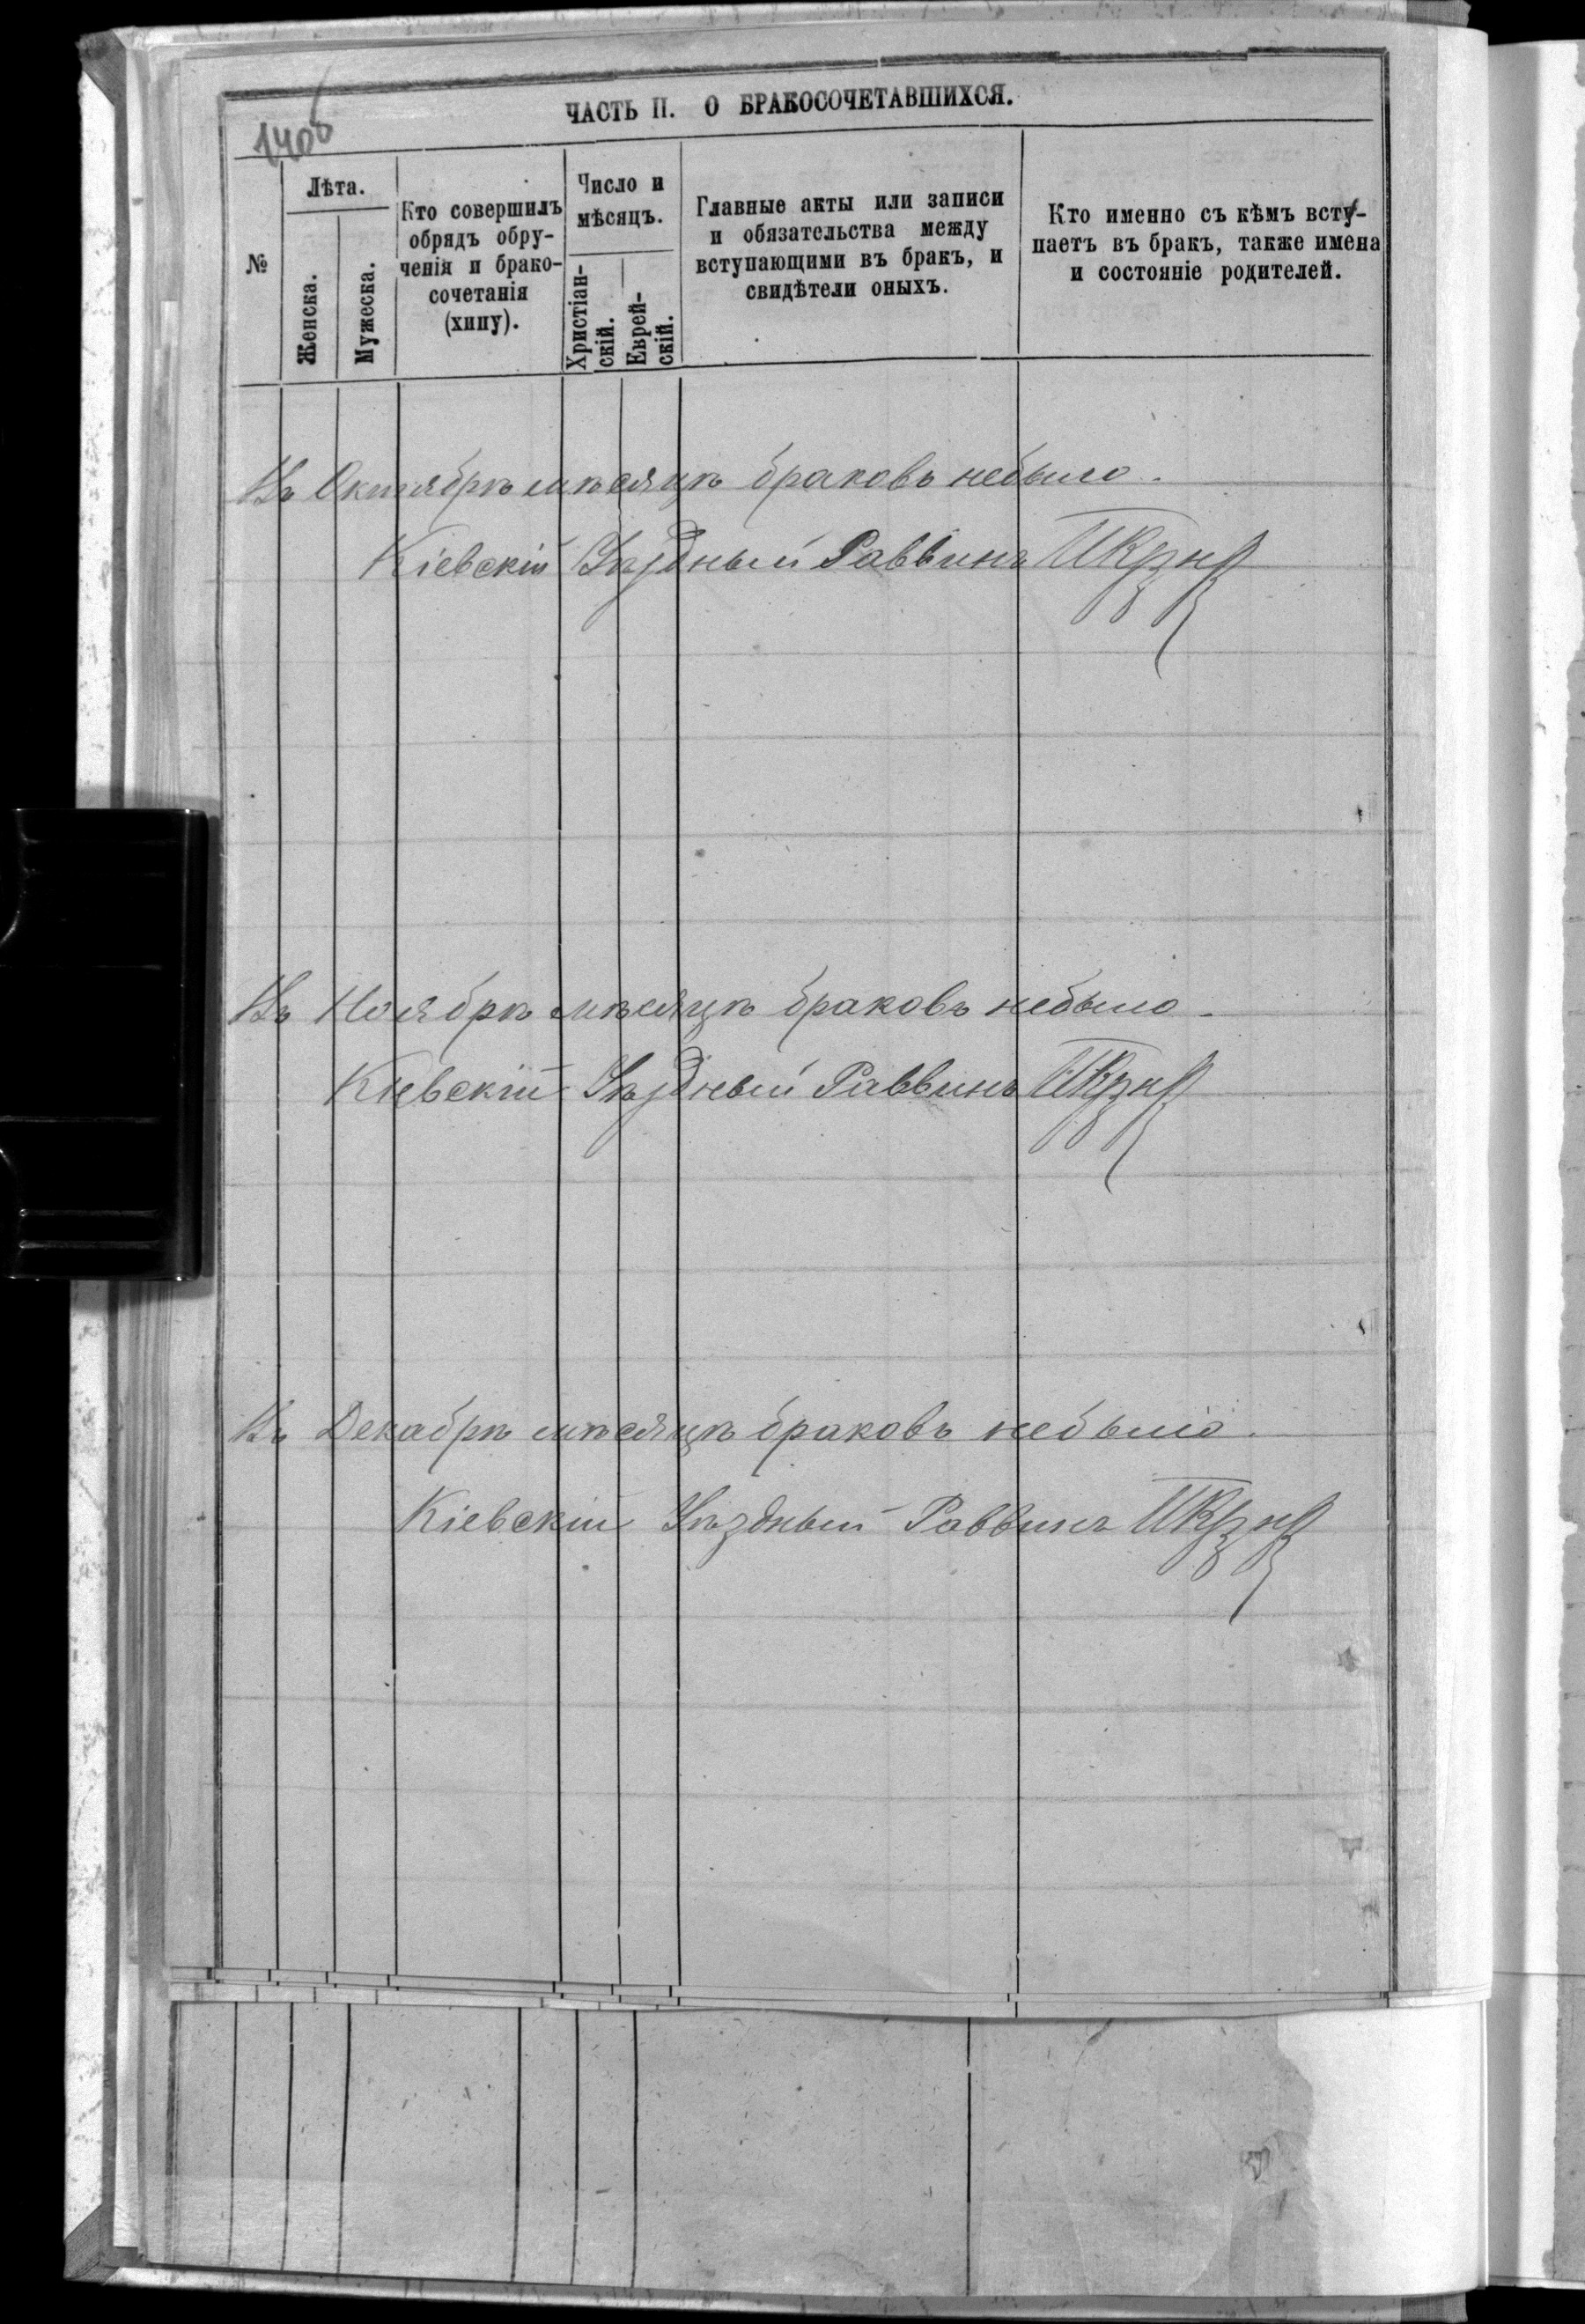 ЧАСТЬ II. О БРАКОСОЧЕТАВШИХСЯ.
№
Лѣта.
Женска.
Мужеска.
Кто совершилъ
обрядъ обру-
ченія и брако-
сочетанія
(хипу).
Число и
мѣсяцъ.
Христіан-
скій.
Еврей-
скій.
Главные акты или записи
и обязательства между
вступающими въ бракъ, и
свидѣтели оныхъ.
Кто именно съ кѣмъ всту-
паетъ въ бракъ, также имена
и состояніе родителей.
Въ Октябрѣ мѣсяцѣ браковъ небыло.
Кіевскій Уѣздный Раввинъ
Въ Ноябрѣ мѣсяцѣ браковъ небыло
Кіевскій Уѣздный Раввинъ
Въ Декабрѣ мѣсяцѣ браковъ небыло.
Кіевскій Уѣздный Раввинъ